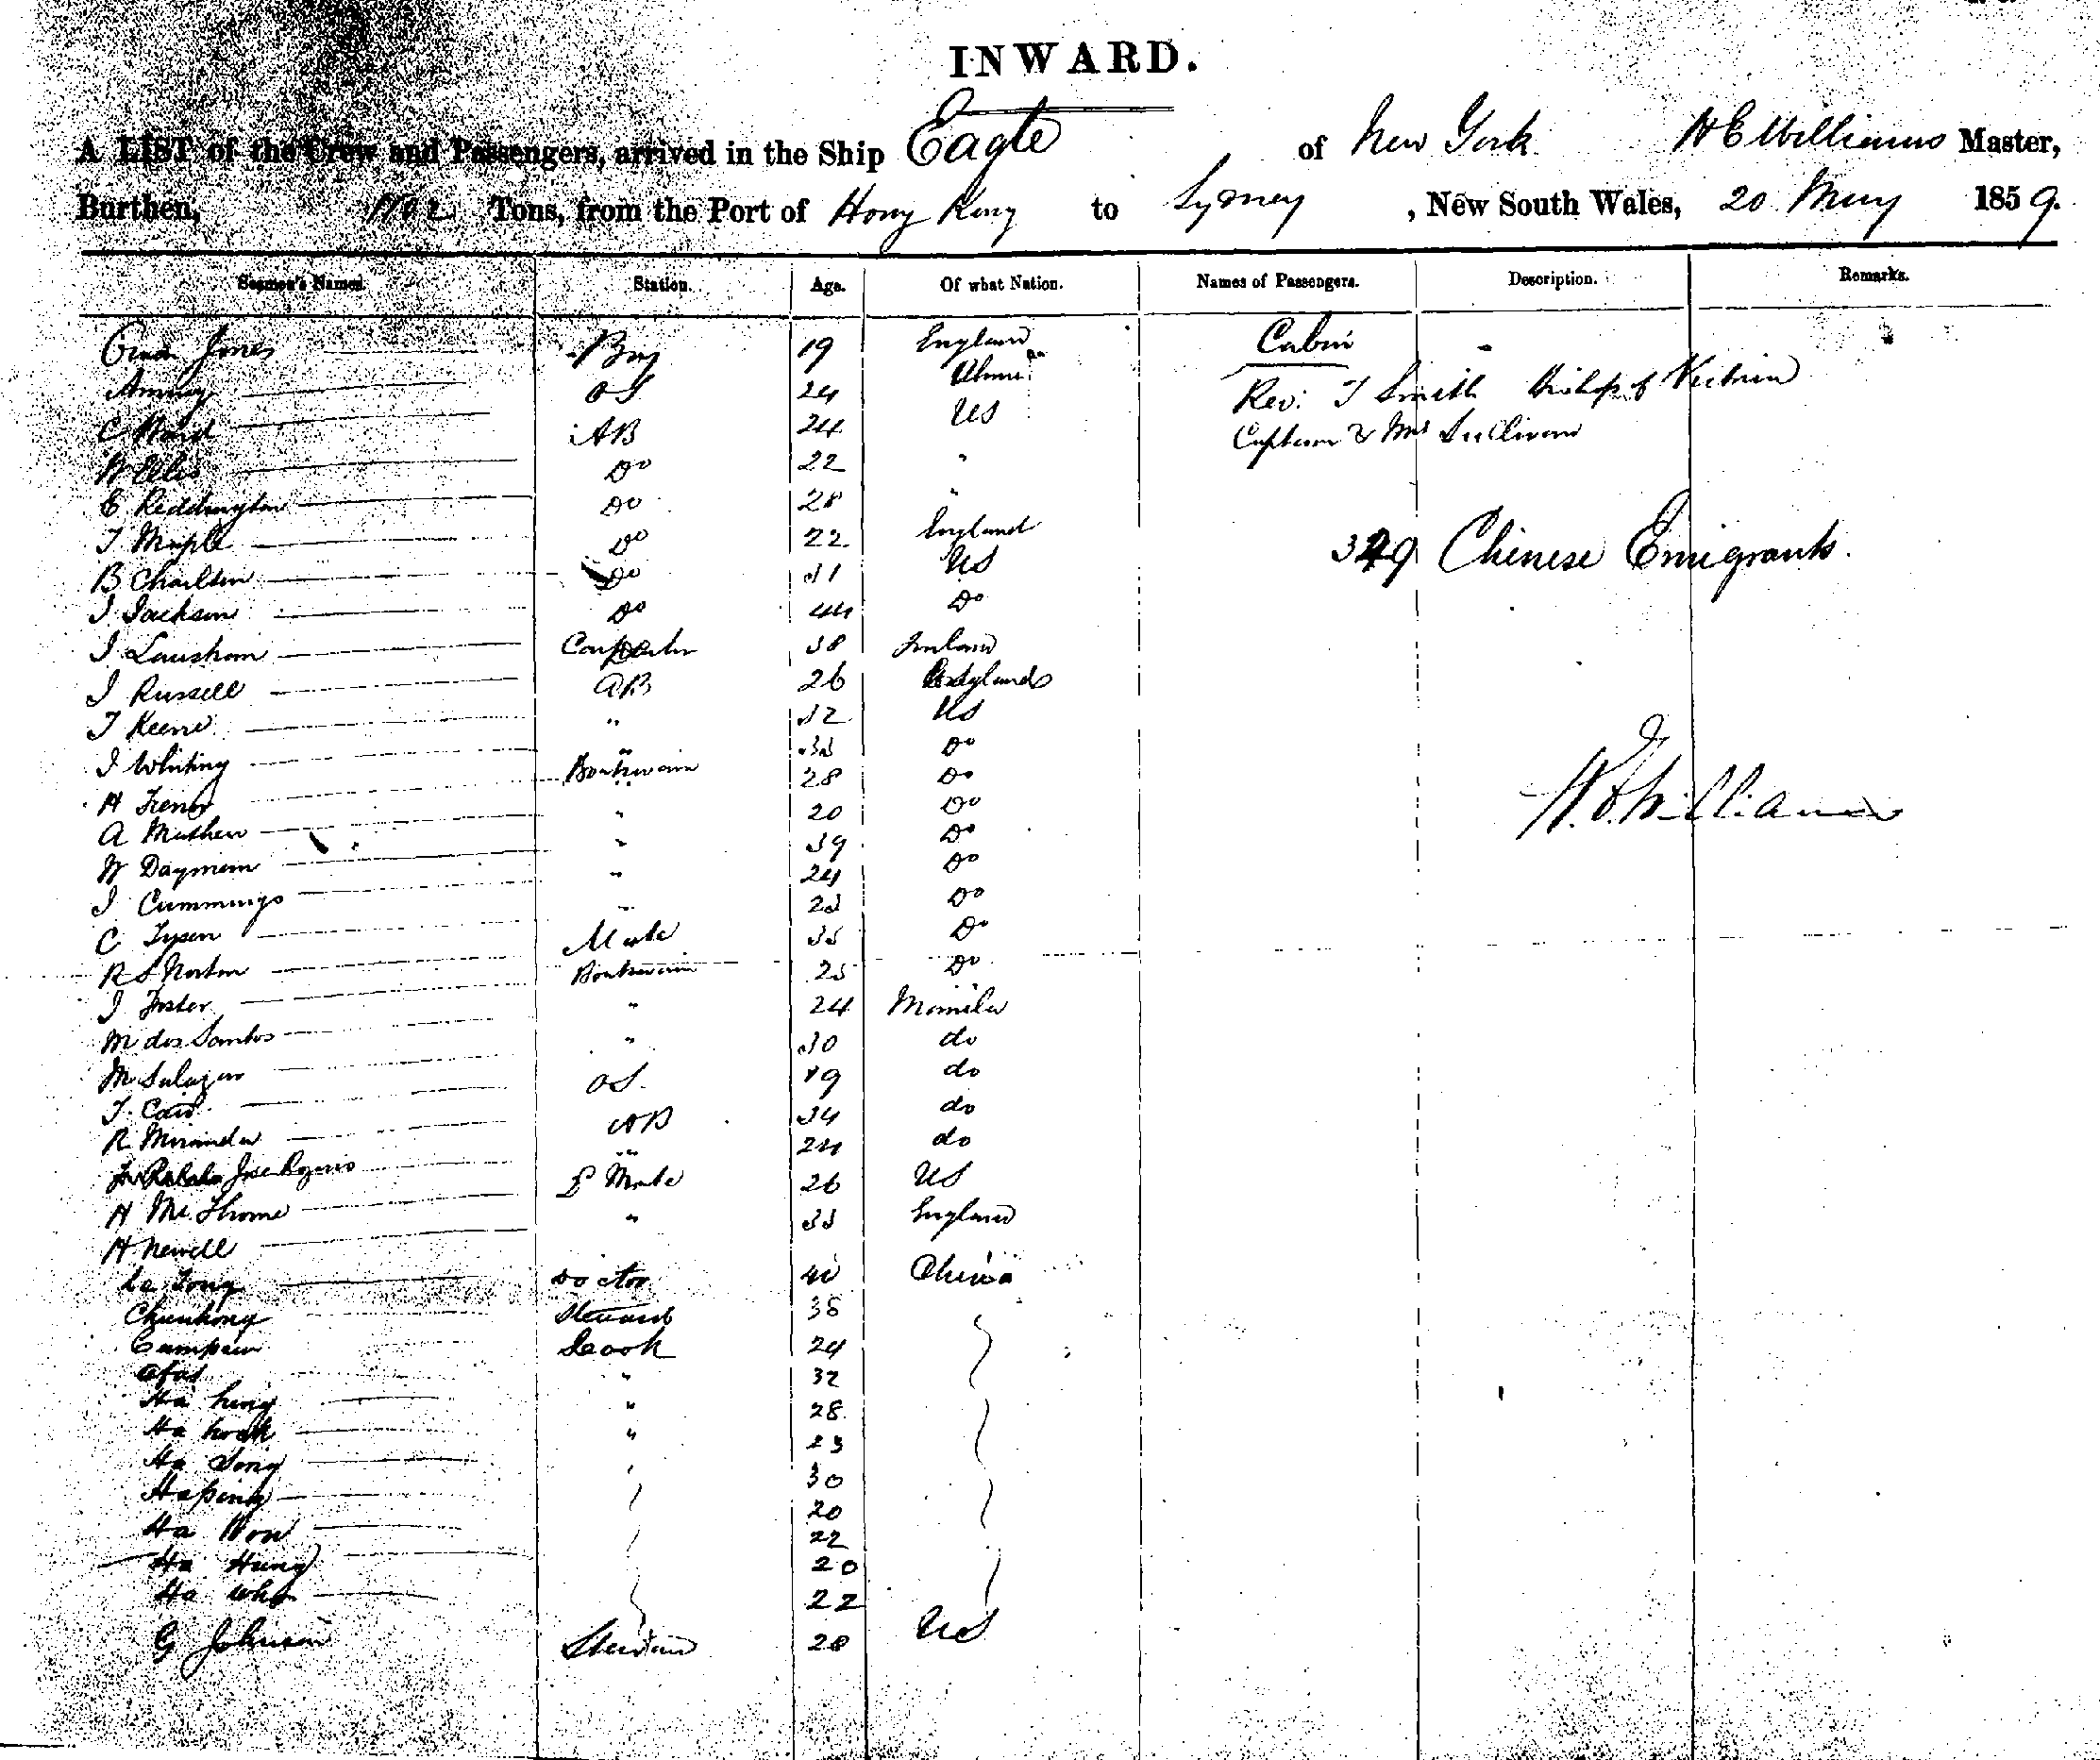 INWARD.
A LIST of the Crew and Passengers, arrived in the Ship Eagle of New York Williams Master,
Burthen, Tons, from the Port of Hong Kong to Sydney, New South Wales, 20 May 1859.
Seamen's Names. Station. Age. Of what Nation. Names of Passengers. Description. Remarks.
Jones Boy 19 England Cabin
OS 24 Rev: T Smith Bishop of Victoria
C Ward AB 24 US Captain & Mrs Sullivan
W Ellis Do 22 "
E Reddington Do 28 "
T Maple Do 22 England 329 Chinese Emigrants.
B Charlton Do 31 US
J Jackson Do 44 Do
J Lausham Carpenter 38
J Russell AB 26
T Keene " 32 US
J Whiting " 33 Do
H Boatswain 28 Do W. Williams
A Mathew " 20 Do
W " 39 Do
J Cummings " 24 Do
C Tysen " 23 Do
R S Norton Mate 35 Do
J Foster Boatswain 25 Do
M dos Santos " 24 Manila
M Salazar " 30 do
T. OS. 19 do
R Miranda AB 34 do
Jose " 24 do
H Mate 26 US
H Newell " 33 England
Le Tong Doctor 40 China
Chunhong Steward 38
Cook 24
Afat " 32
Ha hing " 28
Ha " 23
Ha Song 30
Haping 20
Ha Wow 22
Ha Hung 20
Ha Who 22
G Johnson Steward 28 US